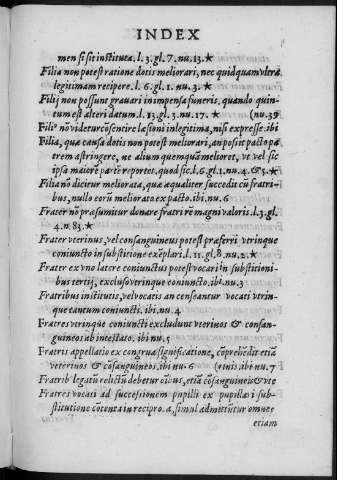 INDEX
men si sit instituta. l. 3. gl. 7. nu. 13. ★
Filia non potest ratione dotis meliorari, nec quidquam vltra
legitimam recipere. l. 6. gl. 1. nu. 3. ★
Filij non possunt grauari in impensa funeris, quando quin-
tum est alteri datum. l. 13. gl. 3. nu. 17. ★ (nu. 39
Filiꝰ nõ videtur cõsentire læsioni in legitima, nisi expresse. ibi
Filia, quæ causa dotis non potest meliorari, an possit pacto pa
trem astringere, ne alium quemquã melioret, vt vel sic
ipsa maiorẽ partẽ reportet, quod sic. l. 6. gl. 1. nu. 4. & 5. ★
Filia nõ dicitur meliorata, quæ æqualiter succedit cũ fratri-
bus, nullo eorũ meliorato ex pacto. ibi nu. 6
Frater nõ præsumitur donare fratri rẽ magni valoris. l. 3. gl.
4. n. 83. ★
Frater vterinus, vel consanguineus potest præferri vtrinque
coniuncto in substitione exẽplari. l. 11. gl. 8. nu. 2. ★
Frater ex vno latere coniunctus potest vocari in substitioni-
bus tertij, excluso vtrinque coniuncto. ibi. nu. 3
Fratribus institutis, vel vocatis an censeantur vocati vtrin-
que tantum coniuncti. ibi nu. 4
Fratres vtrinque coniuncti excludunt vterinos & consan-
guineos ab intestato. ibi nu. 5
Fratris appellatio ex congrua significatione, cõprehẽdit etiã
veterinos & cõsanguineos. ibi nu. 6 (rinis. ibi nu. 7
Fratrib legatũ relictũ debetur oĩbus, etiã cõsanguineis & vte
Fratres vocati ad successionem pupilli ex pupillari sub-
stitutione contenta in recipro. a, simul admittũtur omnes
etiam